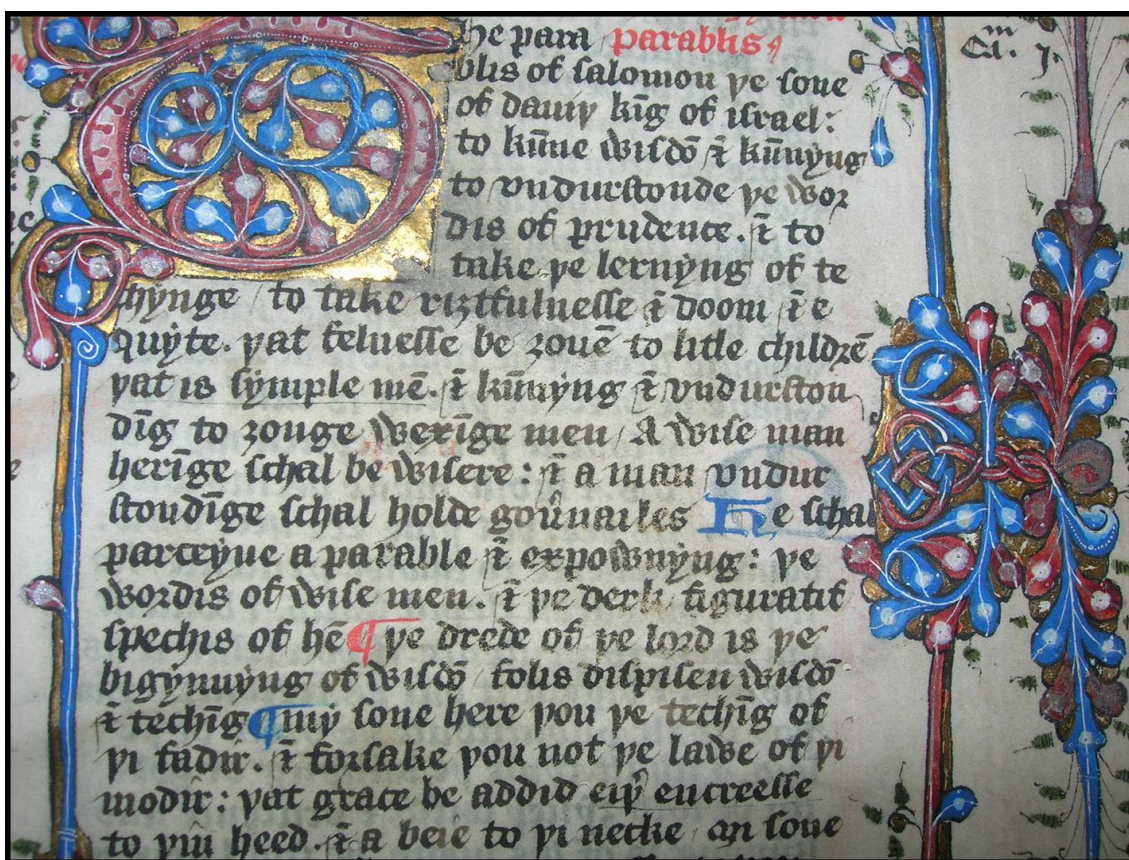 he para parablis
Ca. j. m
blis of salomon ye sone
of dauiy kīg of israel:
to kūne wisdō ⁊ kūnyng
to vndurstonde ye wor
dis of prudence. ⁊ to
take ye lernyng of te
chynge / to take riztfulnesse ⁊ doom ⁊ e
quyte. yat felnesse be zouē to litle childrē
yat is symple mē. ⁊ kūnyng ⁊ vndurston
dīg to zonge wexīge men / A wise man
herīge schal be wisere: ⁊ a man vndur
stondīge schal holde gouernailes He schal
parceyue a parable ⁊ expownyng: ye
wordis of wise men. ⁊ ye derk figuratif
spechis of hē ¶ ye drede of ye lord is ye
bigynnyng of wisdō folis dispisen wisdō
⁊ techīg ¶ my sone here you ye techīg of
yi fadir. ⁊ forsake you not ye lawe of yi
modir: yat grace be addid eiy encreesse
to yin heed. ⁊ a beie to yi necke sone